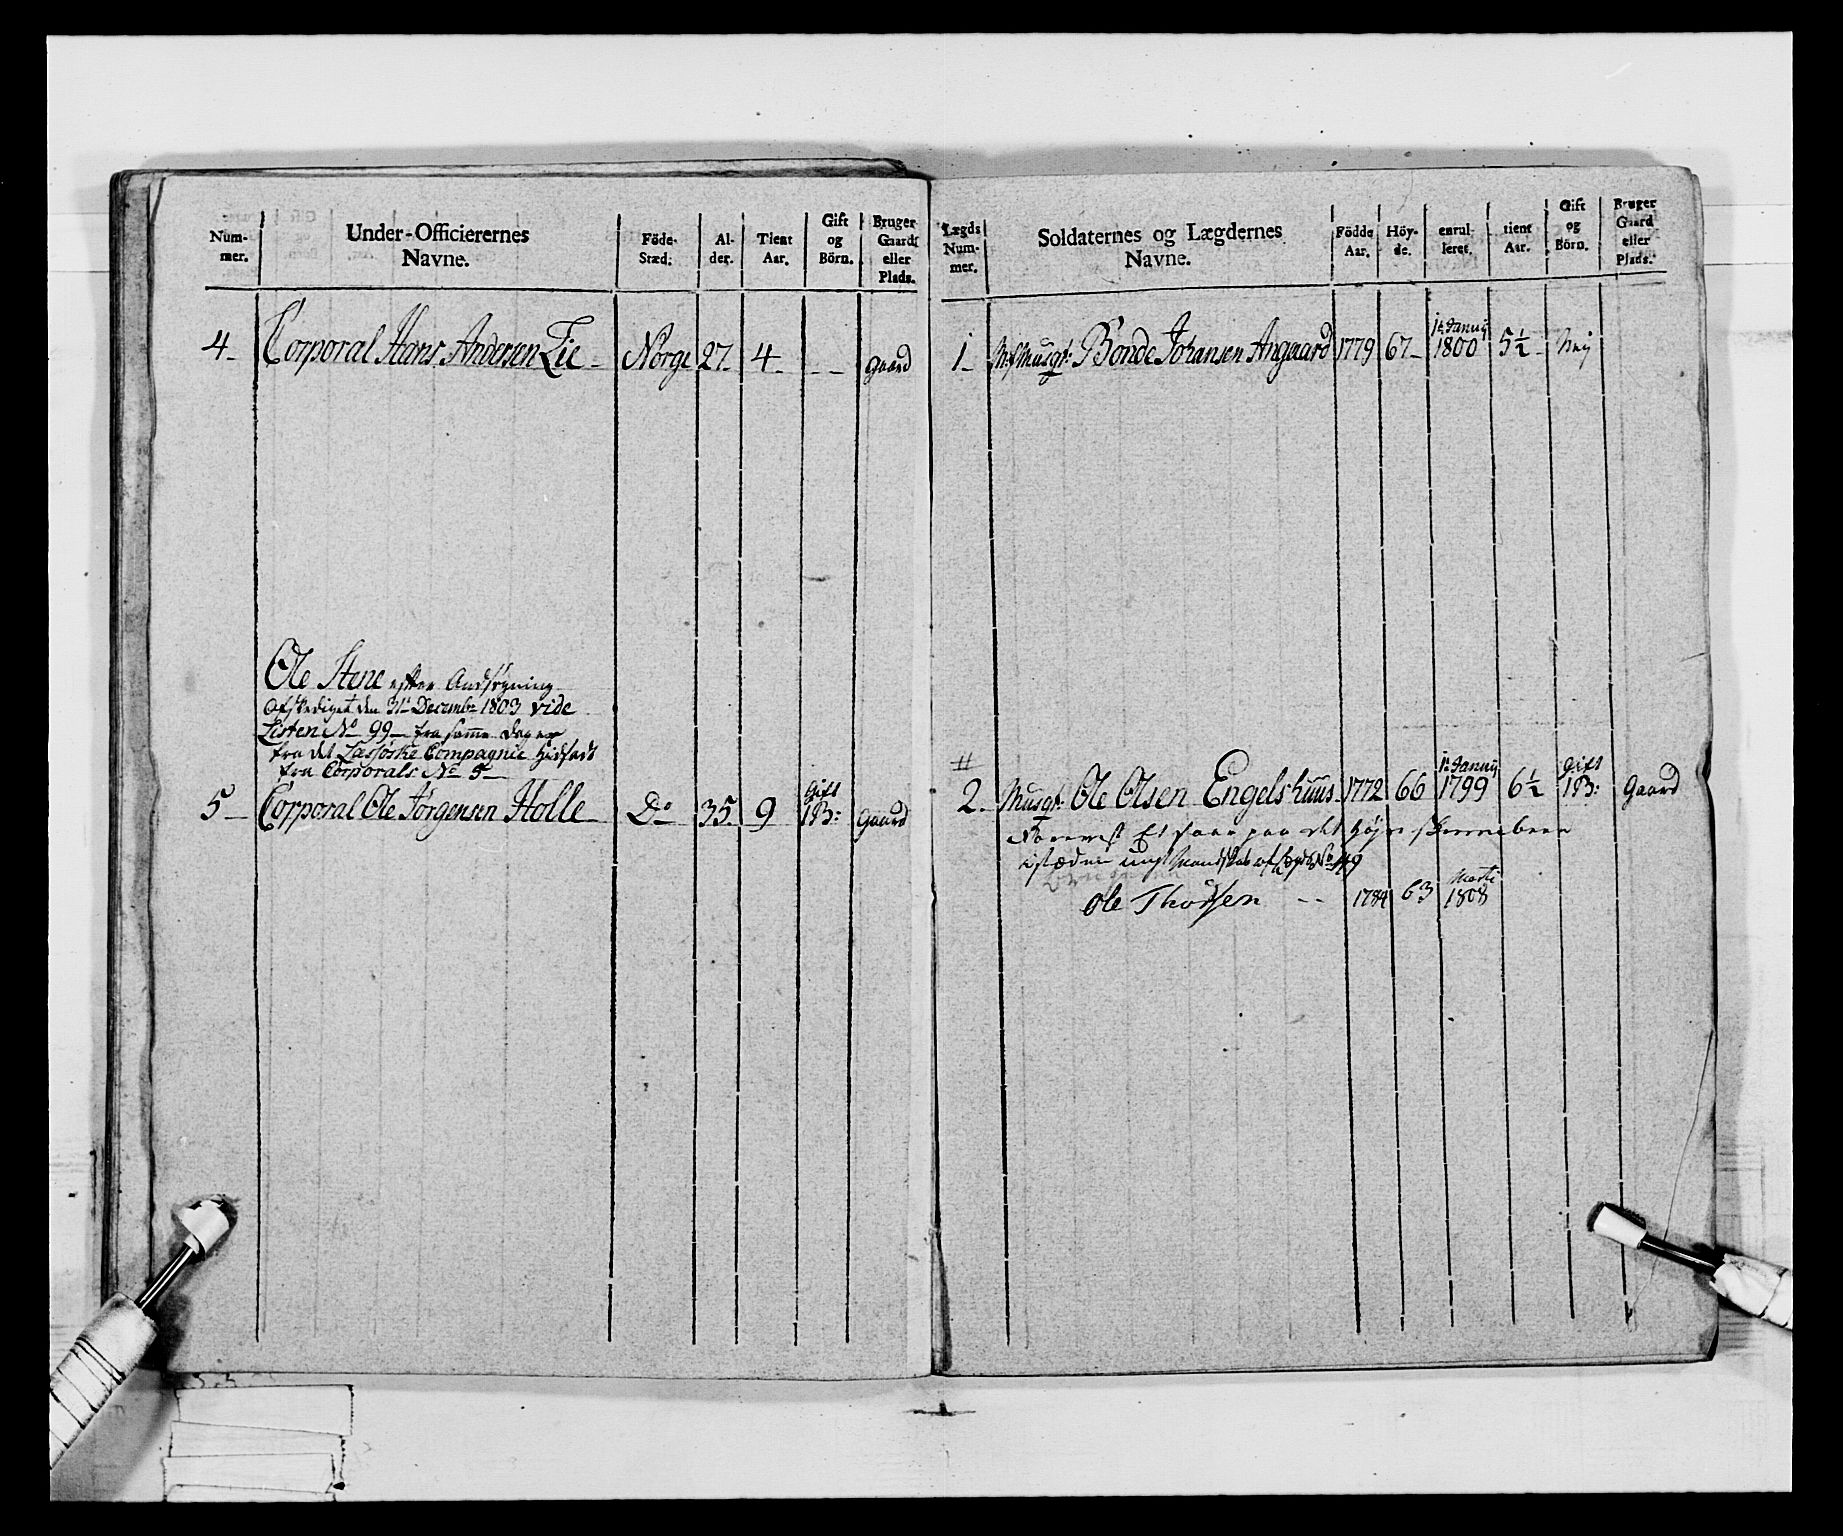 Num-
mer.
Under-Officierernes
Navne.
Föde-
Stæd.
Al-
der.
Tient
Aar.
Gift
og
Börn.
Bruger
Gaard
eller
Plads.
4 Corporal Hans Andersen Lie Norge 27 4 - - gaard
Ole Stene efter Ansøgning
afskediget den 31te Decembr 1803 vide
Listen No 99 fra samme Dag er
fra det Læsjøske Compagnie hidsadt
fra Corporals No 5
5 Corporal Ole Jørgensen Holle Do 35 9 Gift 1 B: Gaard
Lægds
Num-
mer.
Soldaternes og Lægdernes
Navne.
Födde
Aar.
Höy-
de.
enrul-
leret.
tient
Aar.
Gift
og
Börn.
Bruger
Gaard
eller
Plads.
1te Januj
1 Musqt: Bonde Johansen Angaard 1779 67 1800 5½ Neij
1te Januj Gift
2 Musqt: Ole Olsen Engelshuus 1772 66 1799 6½ 1 B: Gaard
Et Saar paa det højre
istæden ungt Mandskab af Lægd No 49
Marti
Ole Thorsen - - 1784 63 1808